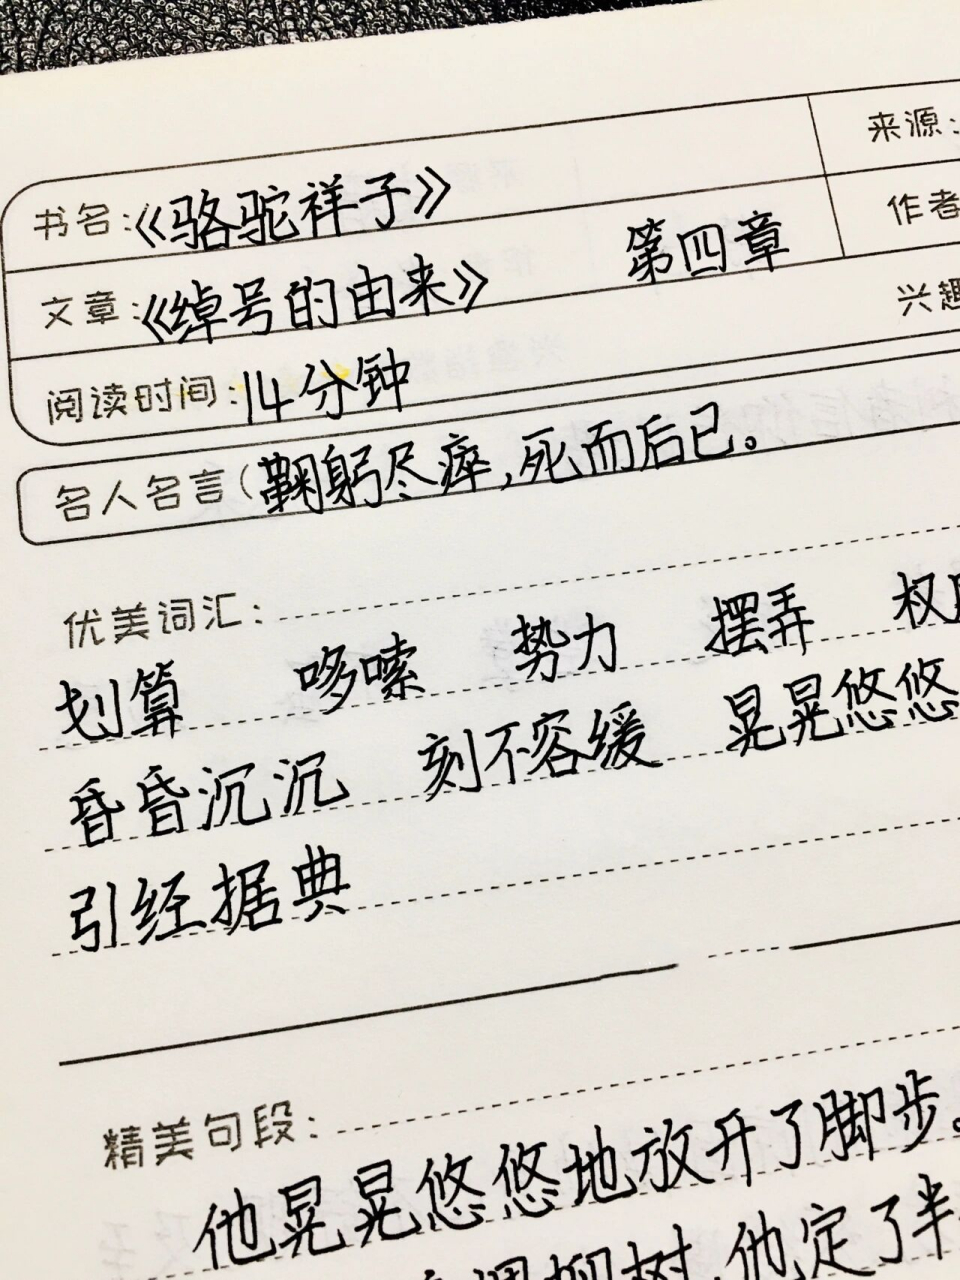 来源:
书名:《骆驼祥子》
作者
文章:《绰号的由来》 第四章
兴趣
阅读时间:14分钟
名人名言(鞠躬尽瘁,死而后已。
优美词汇:
划算 哆嗦 势力 摆弄 权
昏昏沉沉 刻不容缓 晃晃悠悠
引经据典
精美句段:
他晃晃悠悠地放开了脚步。
柳树,他定了半